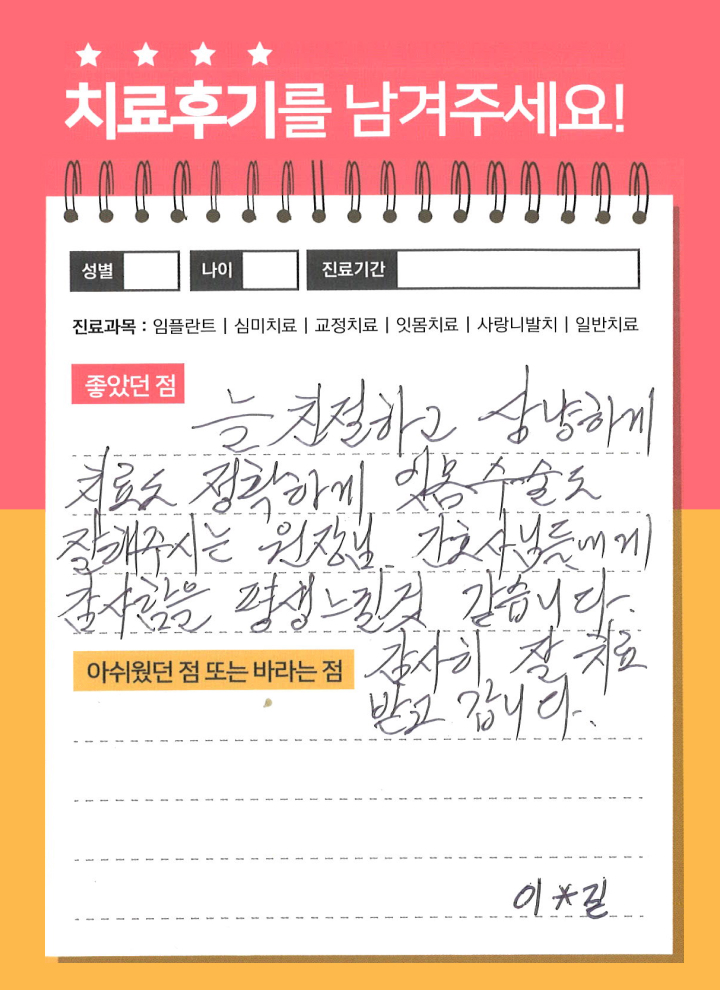 치료후기를 남겨주세요!
성별 나이 진료기간
진료과목 : 임플란트 | 심미치료 | 교정치료 | 잇몸치료 | 사랑니발치 | 일반치료
좋았던 점
늘 친절하고 상냥하게
치료도 정확하게 잇몸수술도
잘해주시는 원장님. 간호사님들에게
감사함을 평생느낄것 같습니다.
아쉬웠던 점 또는 바라는 점
감사히 잘 치료
받고 갑니다.
이*길